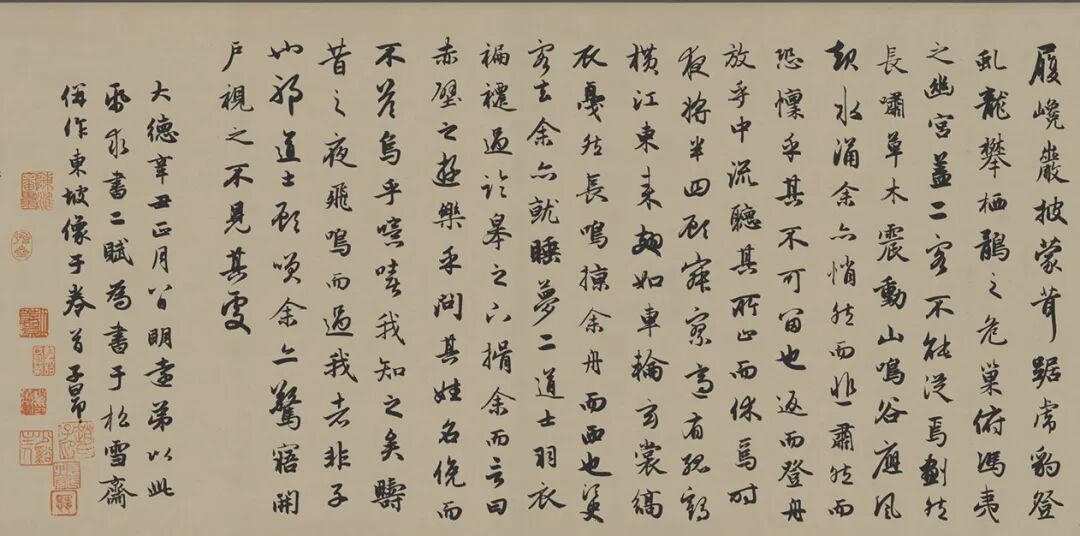 履巉巖披蒙茸踞虎豹登
虬龍攀栖鶻之危巢俯馮夷
之幽宮蓋二客不能從焉劃然
長嘯草木震動山鳴谷應風
起水涌余亦悄然而悲肅然而
恐懍乎其不可留也返而登舟
放乎中流聽其所止而休焉時
夜將半四顧寂寥適有孤鶴
橫江東來翅如車輪玄裳縞
衣戛然長鳴掠余舟而西也臾
客去余亦就睡夢二道士羽衣
褊褼過臨皋之下揖余而言曰
赤壁之遊樂乎問其姓名俛而
不答烏乎噫嘻我知之矣疇
昔之夜飛鳴而過我者非子
也邪道士顧笑余亦驚寤開
戶視之不見其處
大德辛丑正月八日明遠弟以此
紙求書二賦為書于松雪齋
併作東坡像于卷首子昂